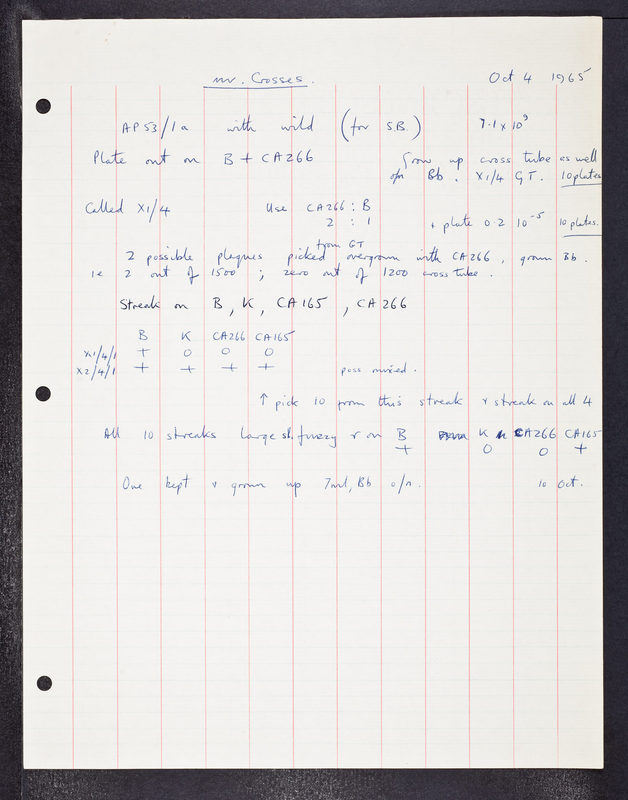 Crosses. Oct 4 1965
AP53/1a with wild (for S.B.) 7.1 x 10⁹
Plate out on B + CA266 Grow up cross tube as well
on Bb. X1/4 GT. 10 plates
Called X1/4 Use CA266 : B
2 : 1 + plate 0.2 10⁻⁵ 10 plates.
from GT
2 possible plaques picked overgrown with CA266, grown Bb.
ie 2 out of 1500 ; zero out of 1200 cross tube.
Streak on B, K, CA165, CA266
B K CA266 CA165
X1/4/1 + O O O
X2/4/1 + + + + poss mixed.
↑ pick 10 from this streak & streak on all 4
All 10 streaks large sl. fuzzy r on B K CA266 CA165
+ O O +
One kept & grown up 7ml, Bb o/n. 10 Oct.